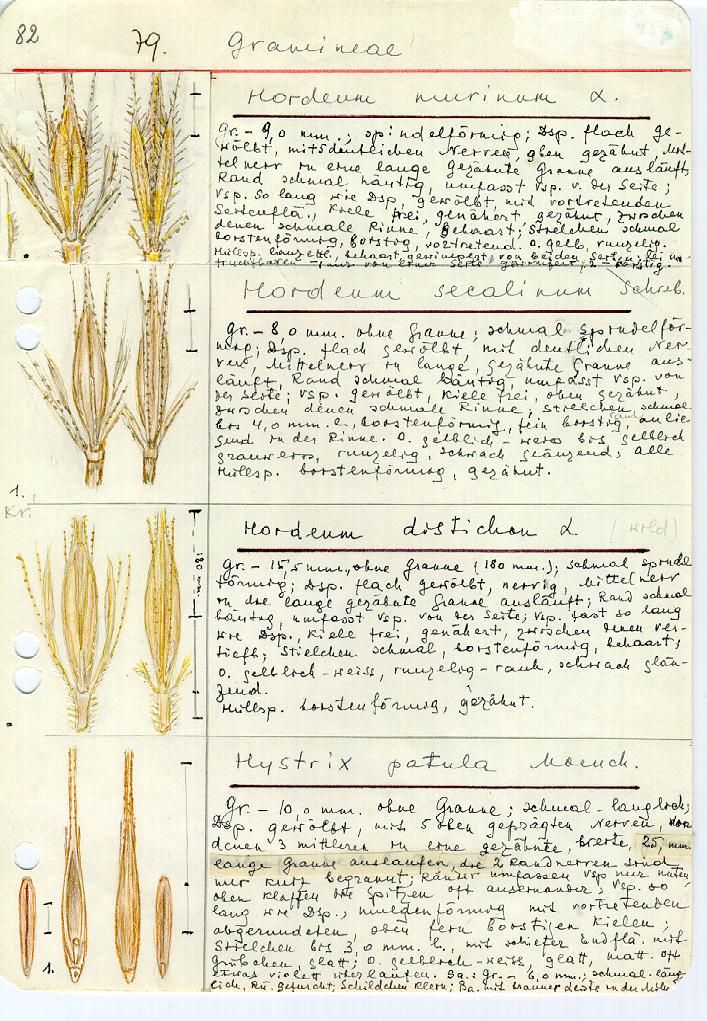 82
79. Gramineae
Hordeum murinum L.
gr. - 9,0 mm., spindelförmig; Dsp. flach ge-
wölbt, mit deutlichen Nerven, oben gezähnt, Mit-
telnerv in eine lange gezähnte Granne ausläuft,
Rand schmal häutig, umfasst Vsp. v. der Seite;
Vsp. so lang wie Dsp., gewölbt, mit vortretenden
Seitenflä., Kiele frei, genähert gezähnt, zwischen
denen schmale Rinne, behaart; Stielchen schmal
borstenförmig, borstig, vortretend. O. gelb, runzelig.
Hüllsp. lanzettl., behaart, gewimpert von beiden Seiten; bei
Hordeum secalinum Schreb.
gr. - 8,0 mm. ohne Granne; schmal spindelför-
mig; Dsp. flach gewölbt, mit deutlichen Ner-
ven, Mittelnerv in lange, gezähnte Granne aus-
läuft, Rand schmal häutig, umfasst Vsp. von
der Seite; Vsp. gewölbt, Kiele frei, oben gezähnt,
zwischen denen schmale Rinne; Stielchen schmal
bis 4,0 mm. l., borstenförmig, fein borstig, anlie-
gend in der Rinne. O. gelblich-weiss bis gelblich
grauweiss, runzelig, schwach glänzend; alle
Hüllsp. borstenförmig, gezähnt.
1.
Hordeum distichon L. (wild)
gr. - 15,5 mm., ohne Granne (180 mm.); schmal spindel
förmig; Dsp. flach gewölbt, nervig, Mittelnerv
in die lange gezähnte Granne ausläuft; Rand schmal
häutig, umfasst Vsp. von der Seite; Vsp. fast so lang
wie Dsp., Kiele frei, genähert, zwischen denen ver-
tieft; Stielchen schmal, borstenförmig, behaart;
O. gelblich-weiss, runzelig-rauh, schwach glän-
zend.
Hüllsp. borstenförmig, gezähnt.
180 mm
Hystrix patula Moench.
gr. - 10,0 mm. ohne Granne; schmal-länglich;
Dsp. gewölbt, mit 5 oben geprägten Nerven, von
denen 3 mittleren in eine gezähnte, breite, 25, mm.
lange Granne auslaufen, die 2 Randnerven sind
nur kurz begrannt; Ränder umfassen Vsp nur unten,
oben klaffen die Spitzen oft auseinander; Vsp. so
lang wie Dsp., muldenförmig mit vortretenden
abgerundeten, oben fein borstigen Kielen;
Stielchen bis 3,0 mm. l., mit schiefer Endflä. mit
Grübchen, glatt; O. gelblich-weiss, glatt, matt. Oft
etwas violett überlaufen. Sa.: gr. - 6,0 mm., schmal-läng
lich, Rü. gefurcht, Schildchen klein; Ba. mit brauner Leiste in der Mitte
1.